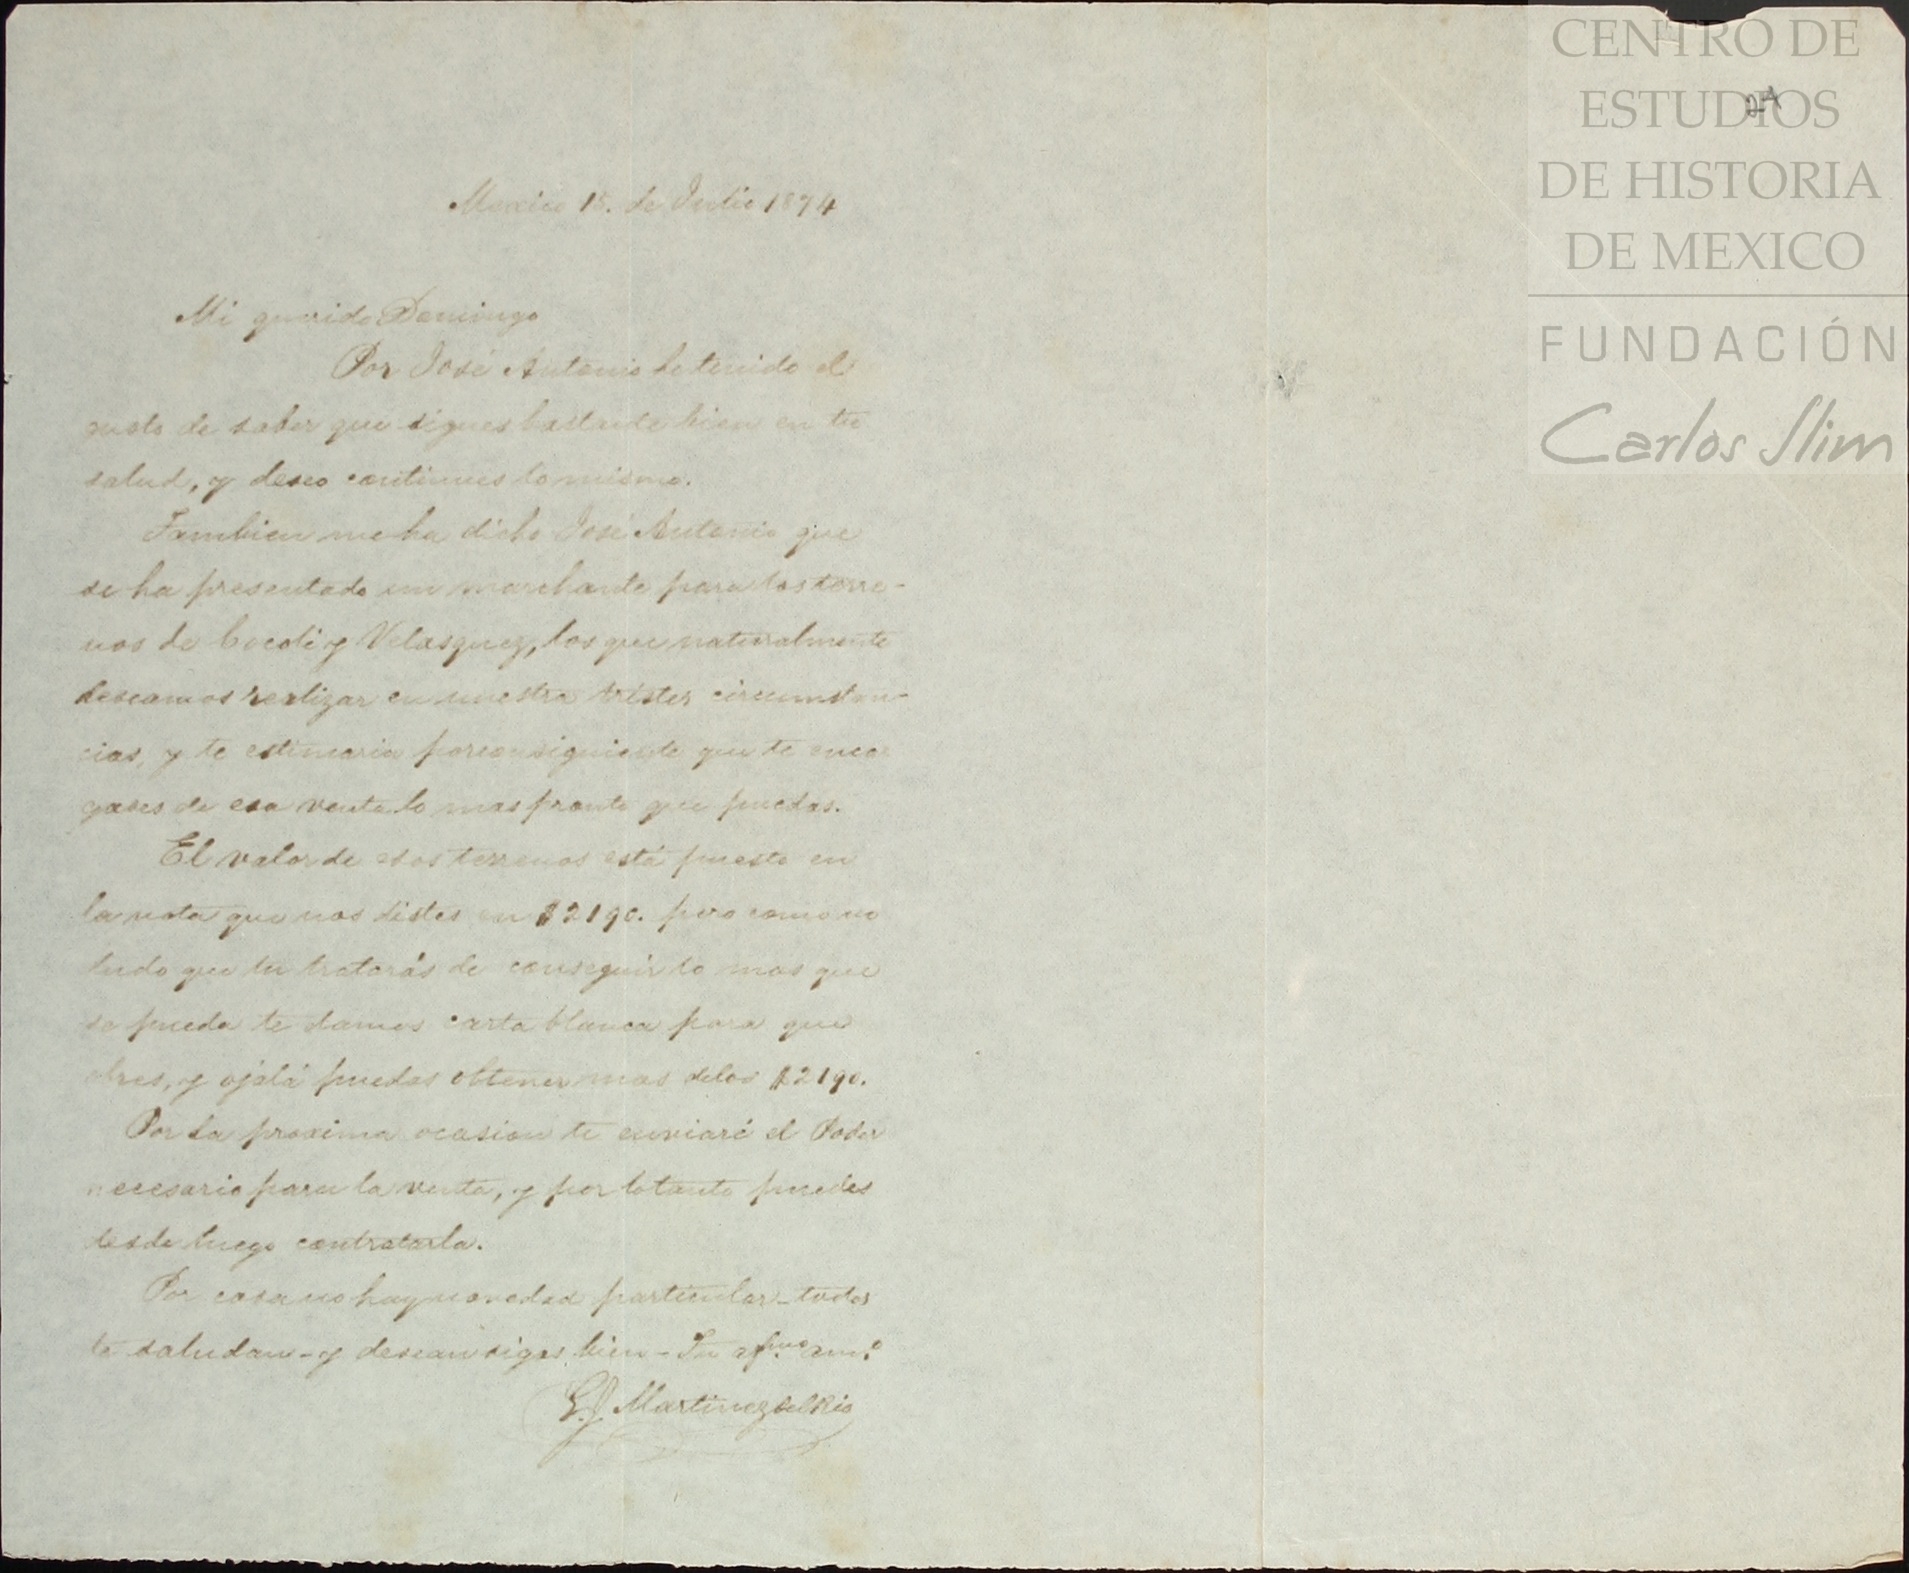 CENTRO DE
ESTUDIOS
DE HISTORIA
DE MEXICO
FUNDACIÓN
Carlos Slim
Mexico 18. de Julio 1874
Mi querido Domingo
Por José Antonio he tenido el
gusto de saber que sigues bastante bien en tu
salud, y deseo continues lo mismo.
Tambien me ha dicho José Antonio que
se ha presentado un marchante para los terre-
nos de Cocoli y Velasquez, los que naturalmente
deseamos realizar en nuestra tristes circumstan-
cias, y te estimaria por consiguiente que te encar
gases de esa venta lo mas pronto que puedas.
El valor de esos terrenos está puesto en
la nota que nos distes en $2190. pero como no
dudo que tu tratarás de conseguir lo mas que
se pueda te damos carta blanca para que
obres, y ojalá puedas obtener mas de los $2190.
Por la proxima ocasion te enviaré el Poder
necesario para la venta, y por lo tanto puedes
desde luego contratarla.
Por casa no hay novedad particular - todos
te saludan - y desean sigas bien - Tu afmo. amo.
G. J. Martinez del Rio